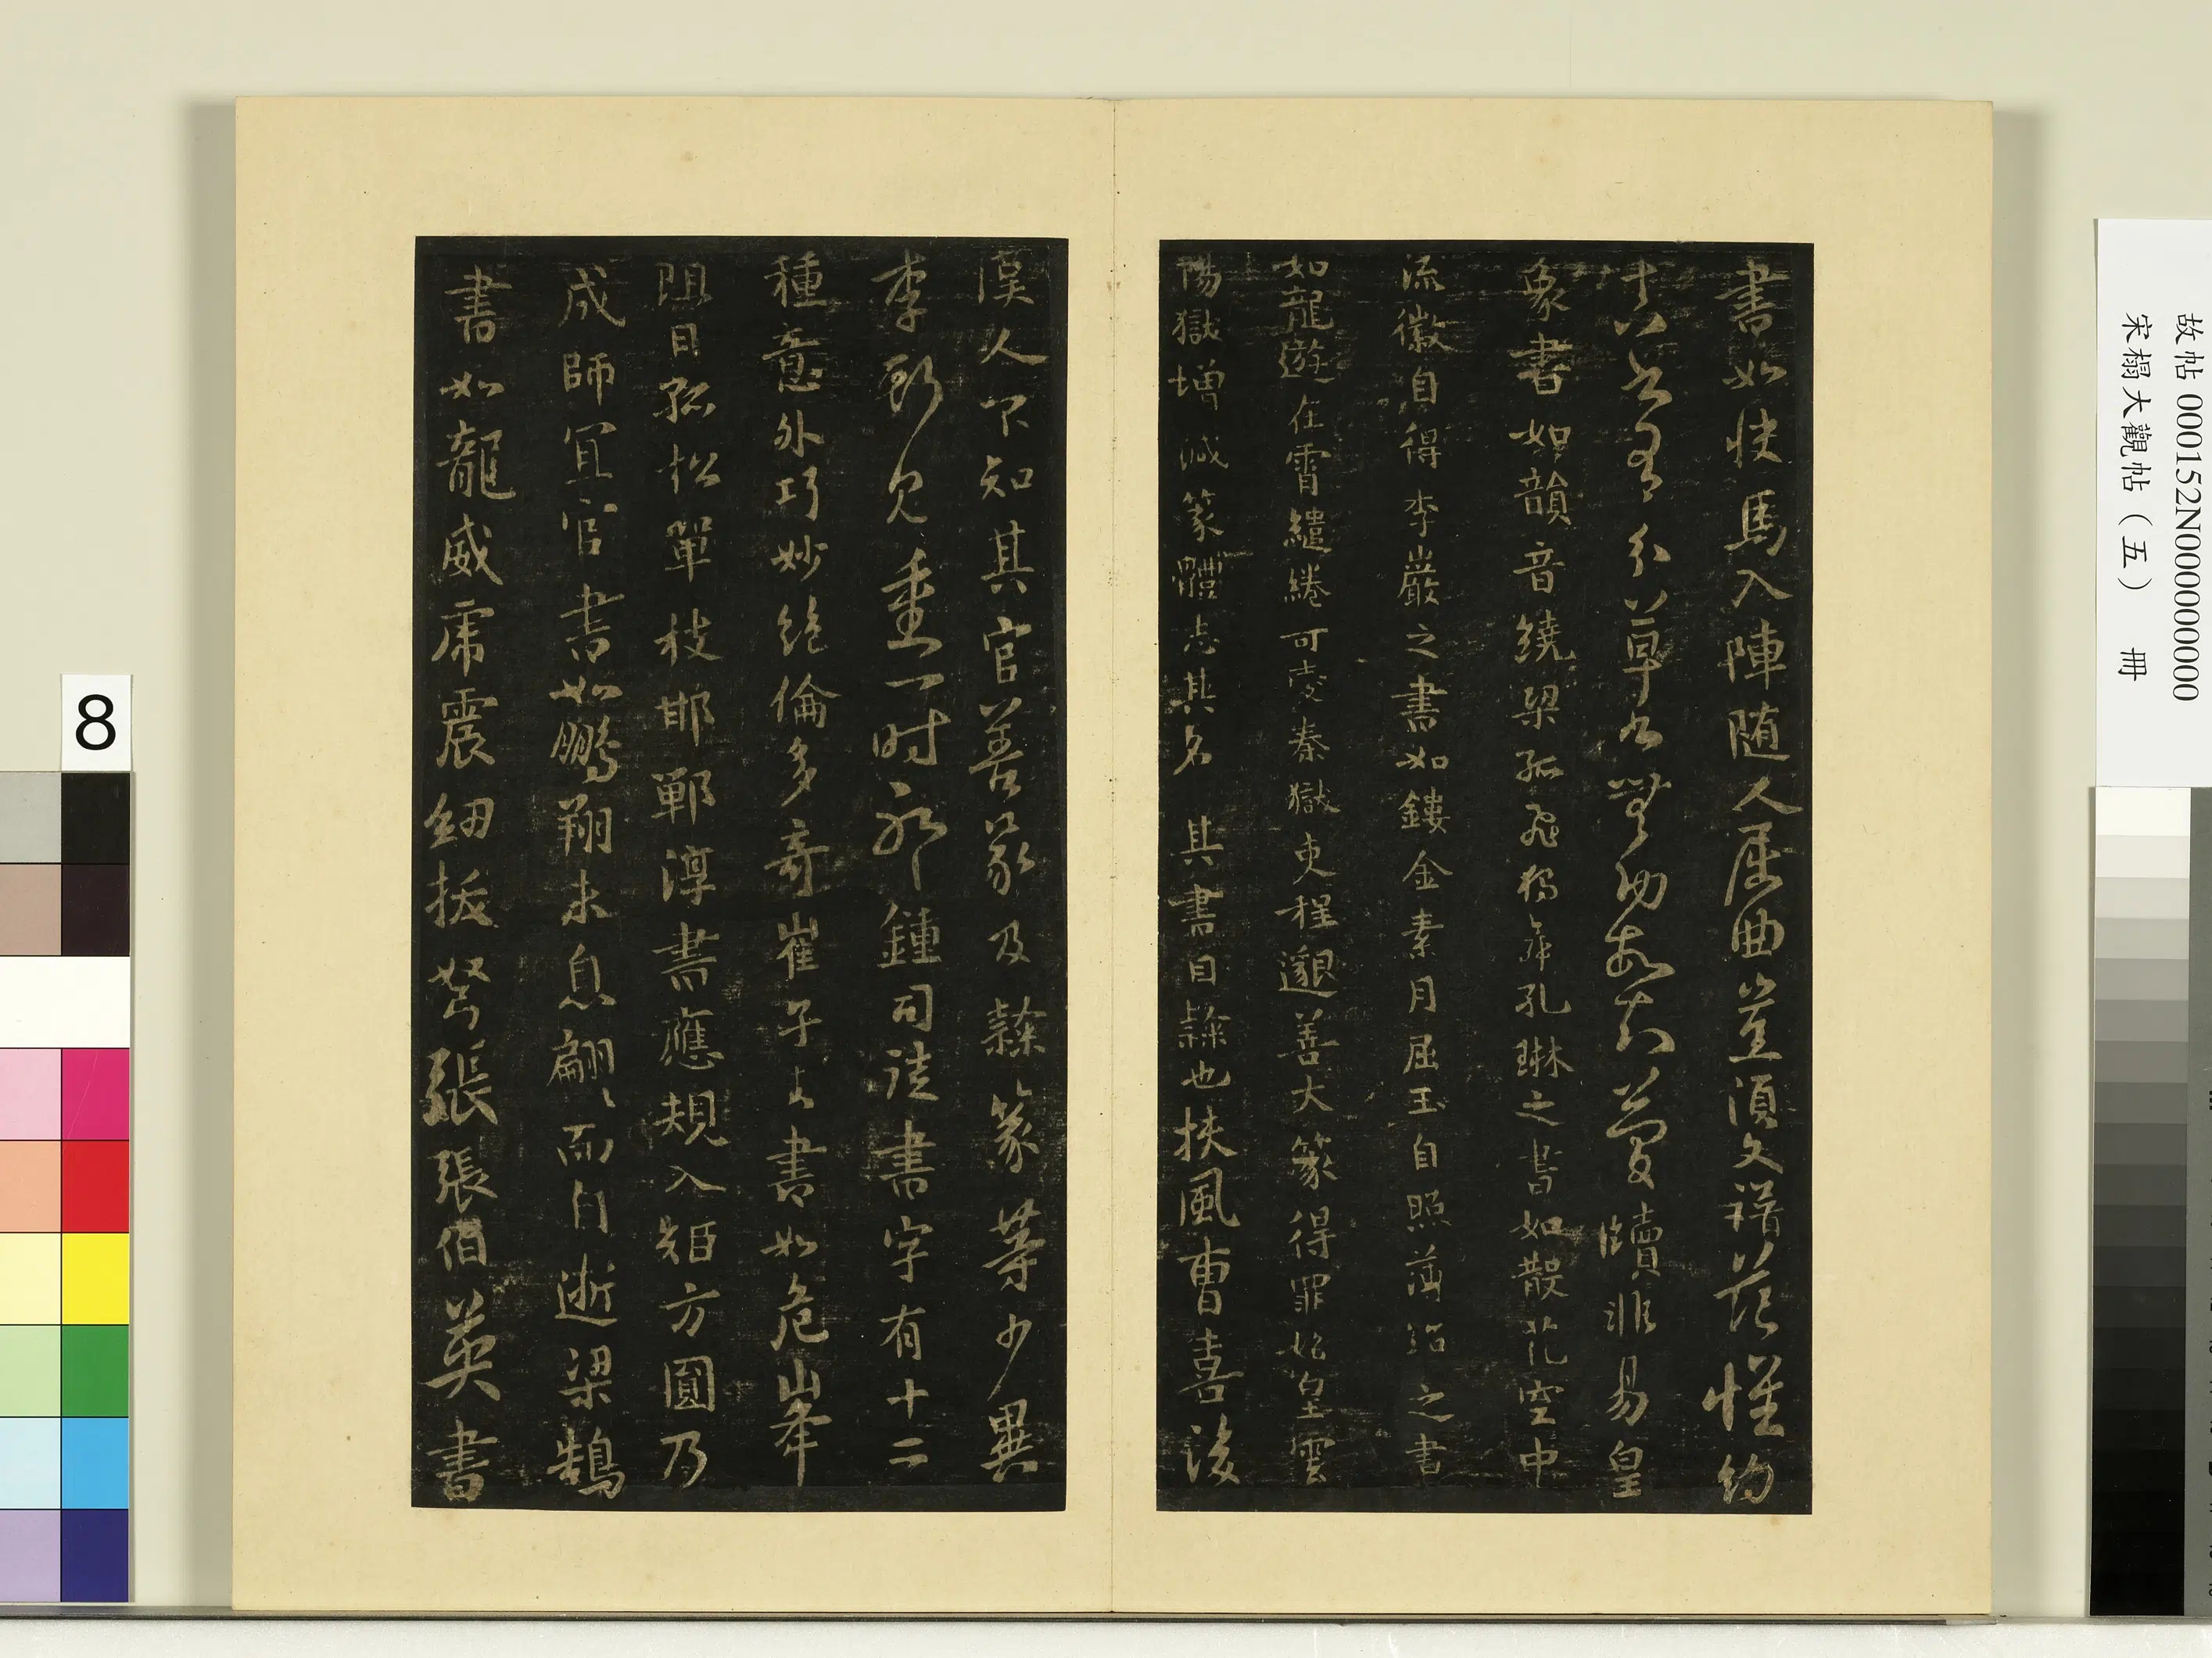 故帖 000152N000000000
宋榻大觀帖（五） 冊
書如快馬入陣随人屈曲豈須文譜范懷約
真書有分草書無功故知簡牘非易皇
象書如韻音繞梁孤飛獨舞孔琳之書如散花空中
流徽自得李巖之書如鏤金素月屈玉自照薄紹之書
如龍遊在霄繾綣可愛秦獄吏程邈善大篆得罪始皇雲
陽獄增減篆體去其名其書曰隸也扶風曹喜後
漢人不知其官善篆及隸篆等少異
李斯見重一时鍾司徒書字有十二
種意外巧妙絕倫多奇崔子玉書如危峯
阻日孤松單枝邯鄲淳書應規入矩方圓乃
成師宜官書如鵬翔未息翩〻而自逝梁鵠
書如龍威虎震釰拔弩張張伯英書
8